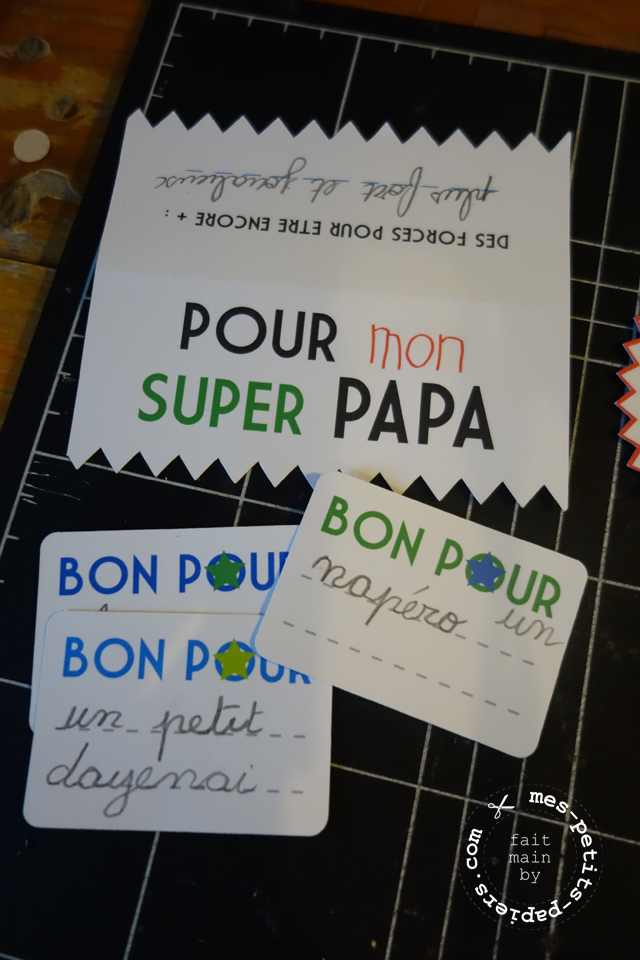 DES FORCES POUR ETRE ENCORE + :
plus fort et
POUR mon
SUPER PAPA
BON POUR
napéro un
BON POUR
BON POUR
un petit
dayenai
mes-petits-papiers.com
fait
main
by